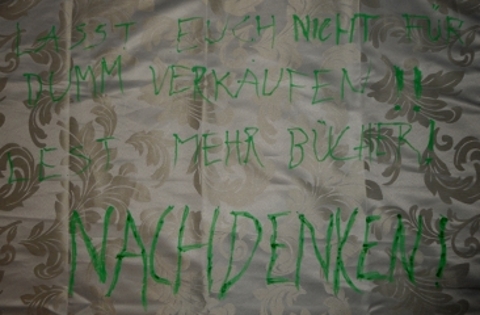 LASST EUCH NICHT FÜR
DUMM VERKAUFEN!!
LEST MEHR BÜCHER!
NACHDENKEN!